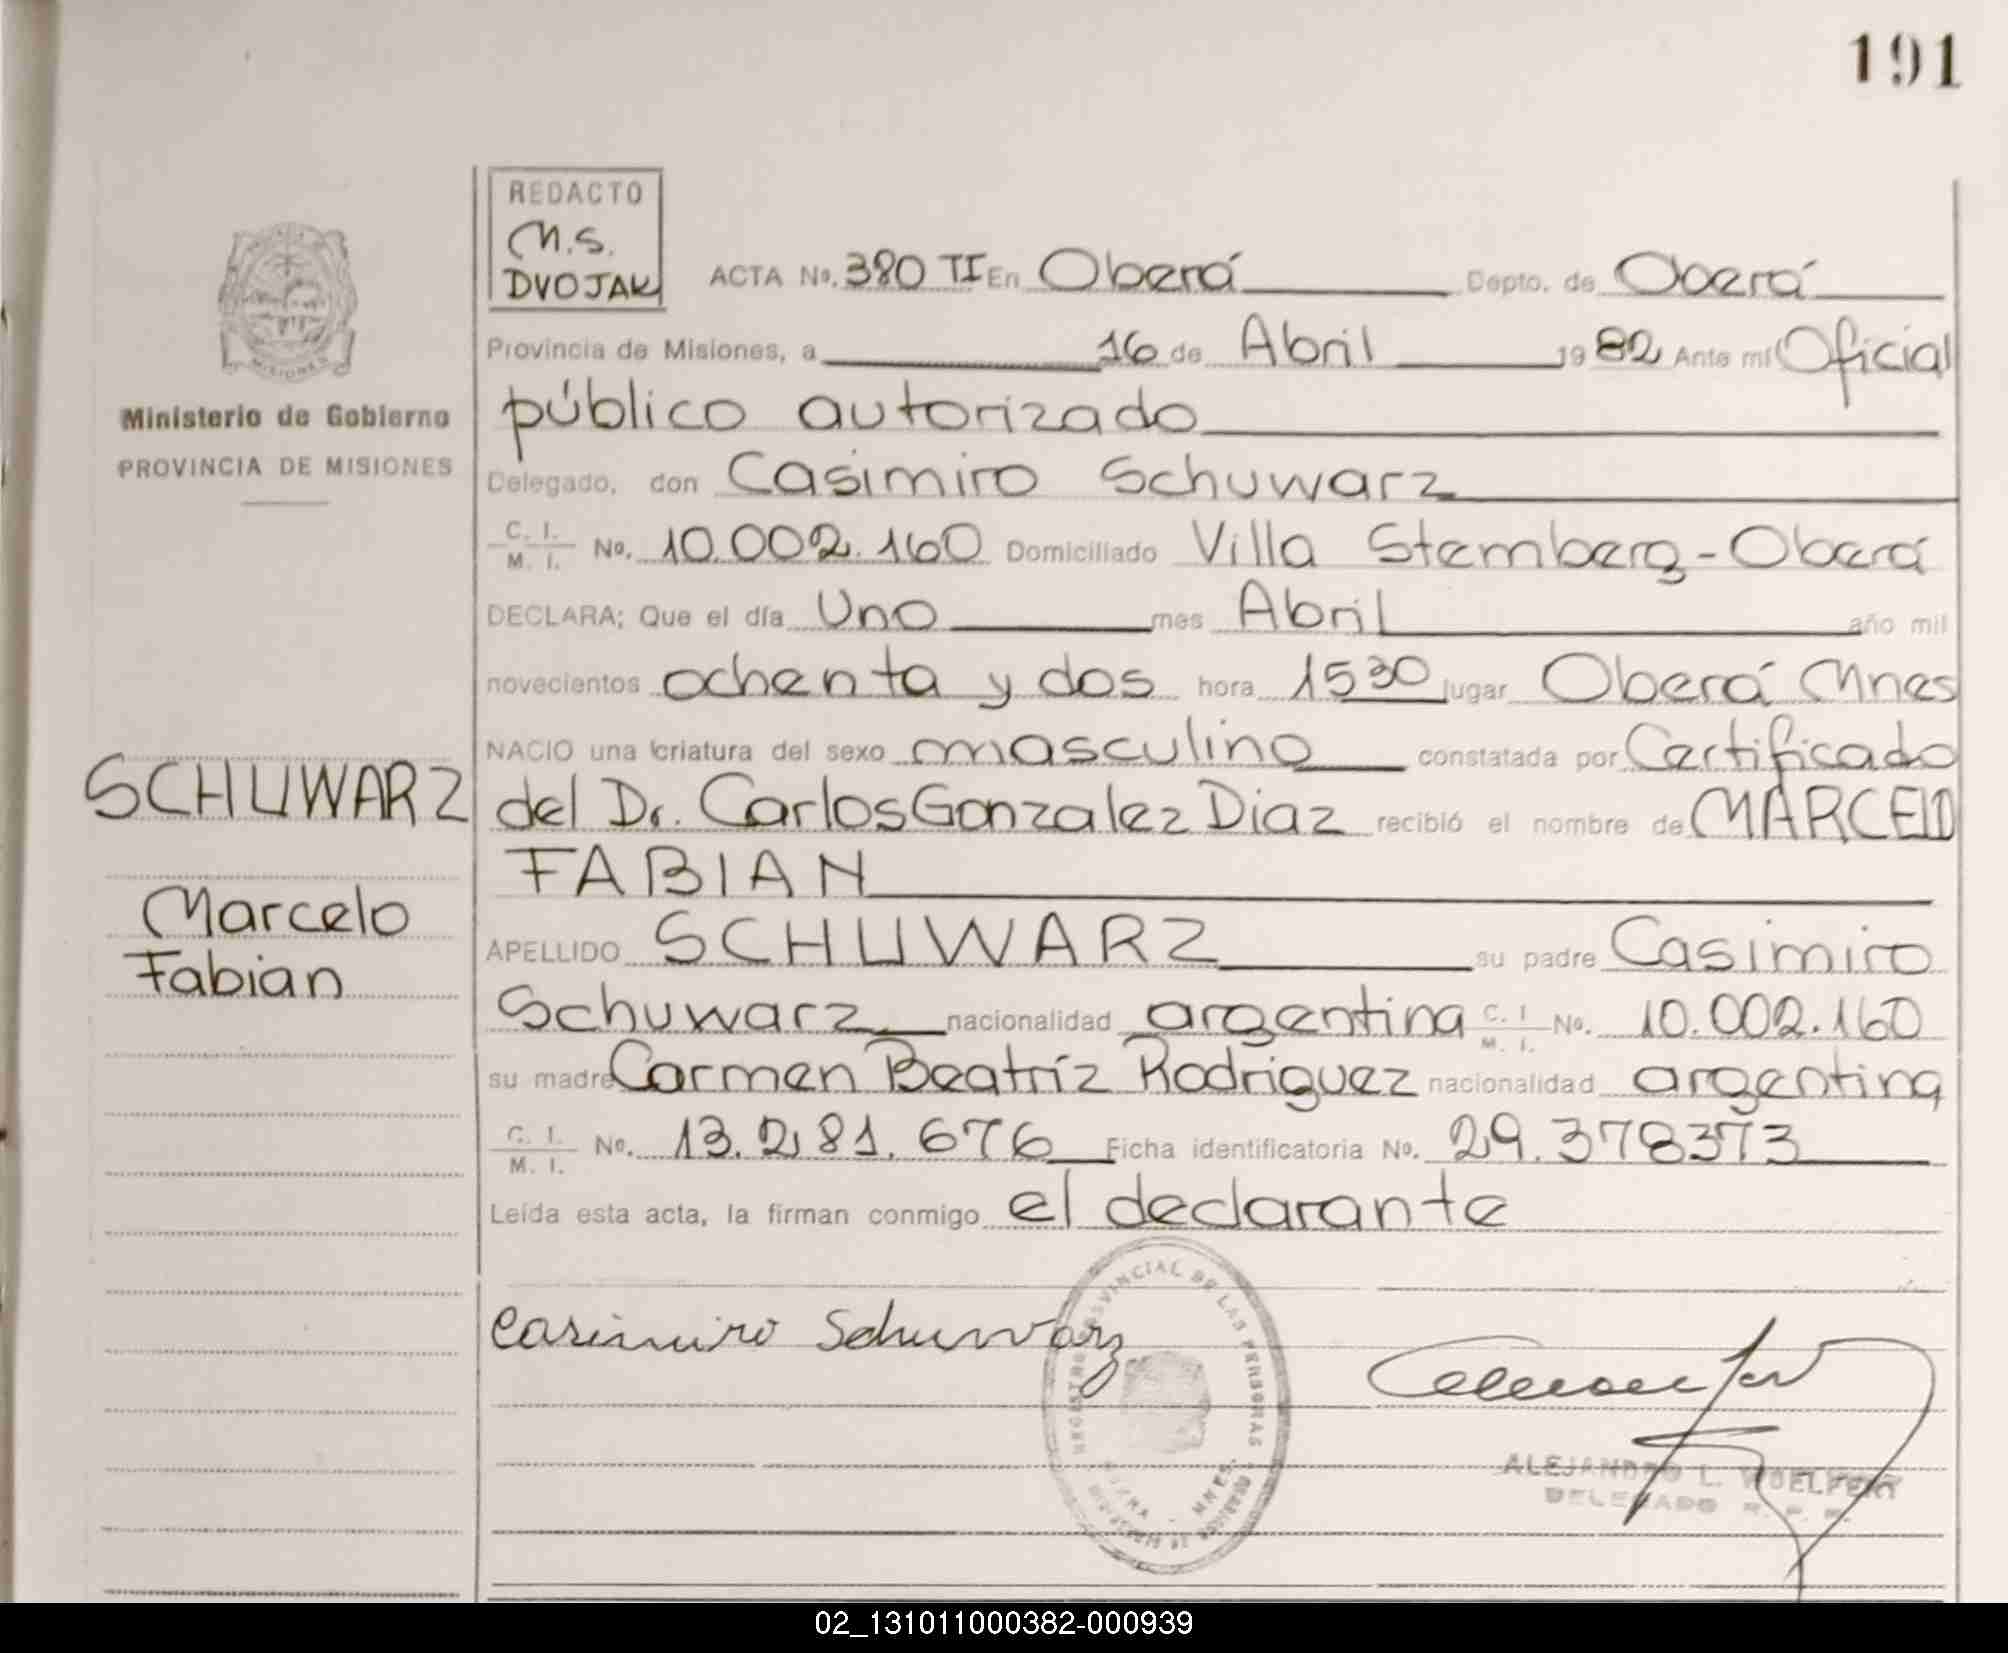 191
REDACTO
M.S.
DVOJAK
ACTA No. 380 TI En Oberá Depto. de Oberá
Provincia de Misiones, a 16 de Abril 1982 Ante mí Oficial
público autorizado
MISIONES
Ministerio de Gobierno
PROVINCIA DE MISIONES
Delegado, don Casimiro Schuwarz
C. I.
M. I. No. 10.002.160 Domiciliado Villa Stemberg - Oberá
DECLARA; Que el día Uno mes Abril año mil
novecientos ochenta y dos hora 1530 lugar Oberá Mnes
NACIO una criatura del sexo masculino constatada por Certificado
SCHUWARZ
del Dr. Carlos Gonzalez Diaz recibió el nombre de MARCELO
FABIAN
Marcelo
Fabian
APELLIDO SCHUWARZ su padre Casimiro
Schuwarz nacionalidad argentina C. I
M. I. No. 10.002.160
su madre Carmen Beatríz Rodriguez nacionalidad argentina
C. I.
M. I. No. 13.281.676 Ficha identificatoria No. 29.378373
Leída esta acta, la firman conmigo el declarante
Casimiro Schuwarz
REGISTRO PROVINCIAL DE LAS PERSONAS
MNES.
ALEJANDRO L. WOELFERT
DELEGADO R. P. P.
02_131011000382-000939